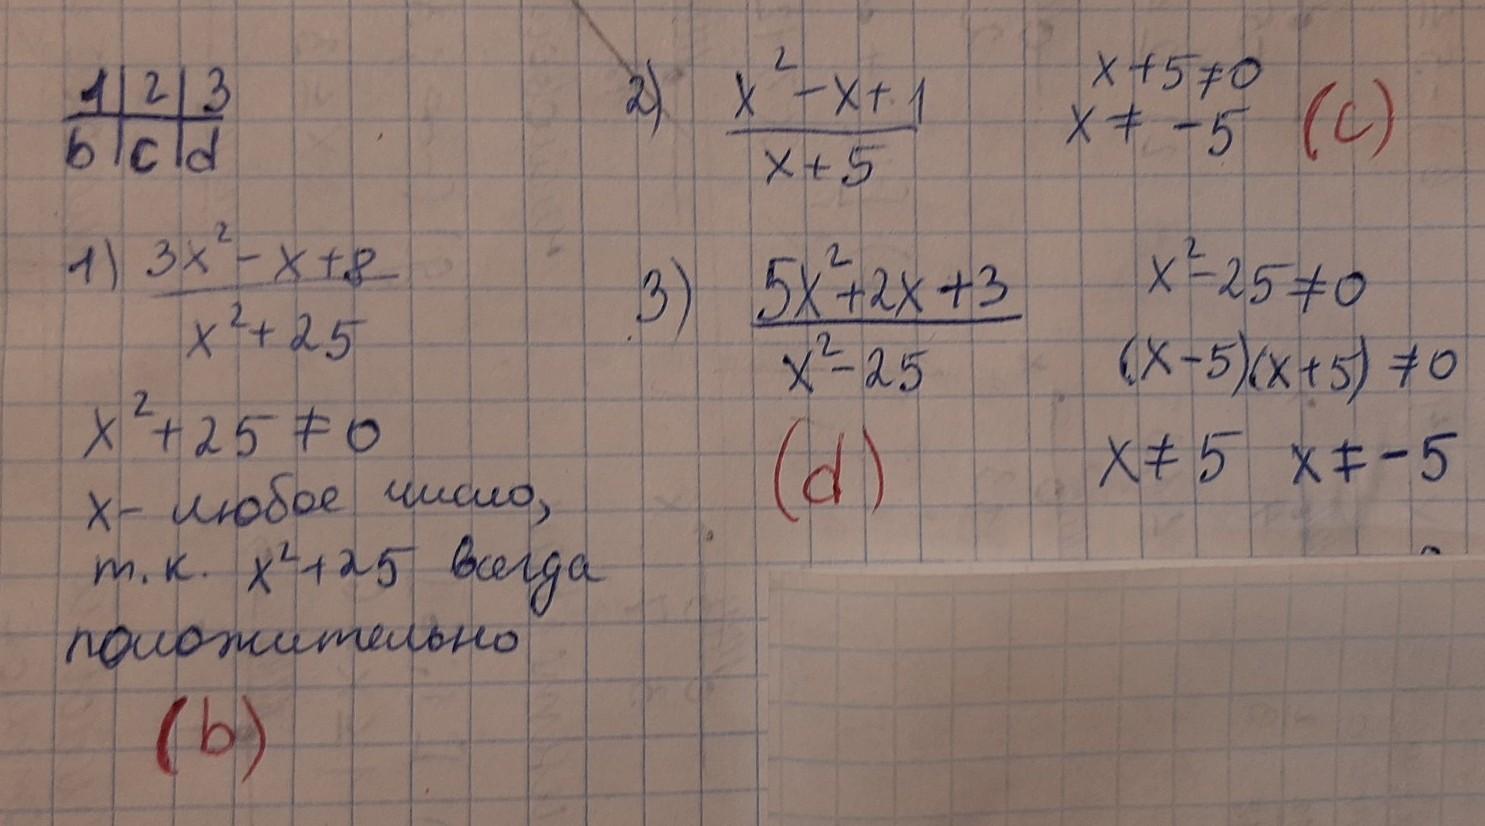 1 | 2 | 3
b | c | d
1) (3x² - x + 8)/(x² + 25)
x² + 25 ≠ 0
x - любое число,
т.к. x² + 25 всегда
положительно
(b)
2) (x² - x + 1)/(x + 5)
x + 5 ≠ 0
x ≠ -5
(c)
3) (5x² + 2x + 3)/(x² - 25)
x² - 25 ≠ 0
(x - 5)(x + 5) ≠ 0
x ≠ 5 x ≠ -5
(d)